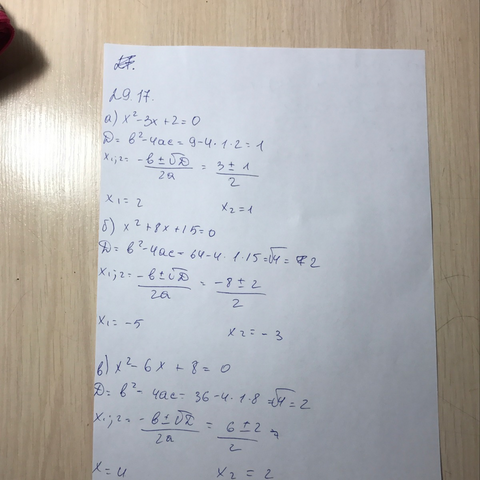 29.17.
а) x²-3x+2=0
D= b²-4ac= 9-4·1·2=1
x₁;₂= -b±√D/2a = 3±1/2
x₁=2 x₂=1
б) x²+8x+15=0
D= b²-4ac= 64-4·1·15=√4= 2
x₁;₂= -b±√D/2a = -8±2/2
x₁= -5 x₂= -3
в) x²-6x+8=0
D= b²-4ac= 36-4·1·8=√4=2
x₁;₂= -b±√D/2a = 6±2/2
x=4 x₂=2